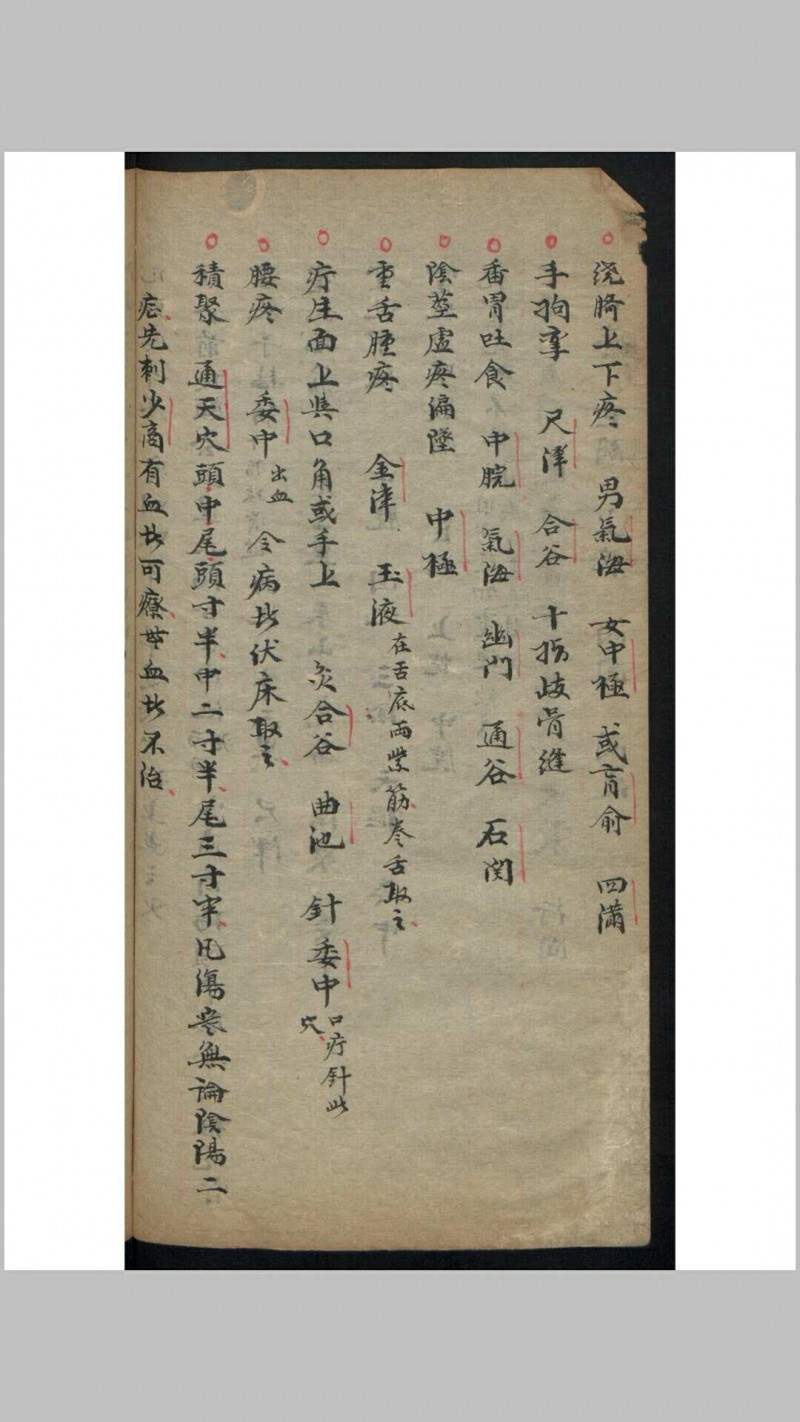 ○浇臍上下疼 男氣海 女中極 或肓俞 四滿
○手拘挛 尺澤 合谷 十指歧骨縫
○番胃吐食 中脘 氣海 幽门 通谷 石関
○陰莖虛疼偏墜 中極
○重舌腫疼 金津 玉液 在舌底兩紫筋卷舌取之
○疔生面上與口角或手上 灸合谷 曲池 針委中 口疔針此穴
○腰疼 委中 出血 令病者伏床取之
○積聚 通天穴 頭中尾頭寸半中二寸半尾三寸半凡傷丧無論陰陽二
症先刺少商有血者可療無血者不治